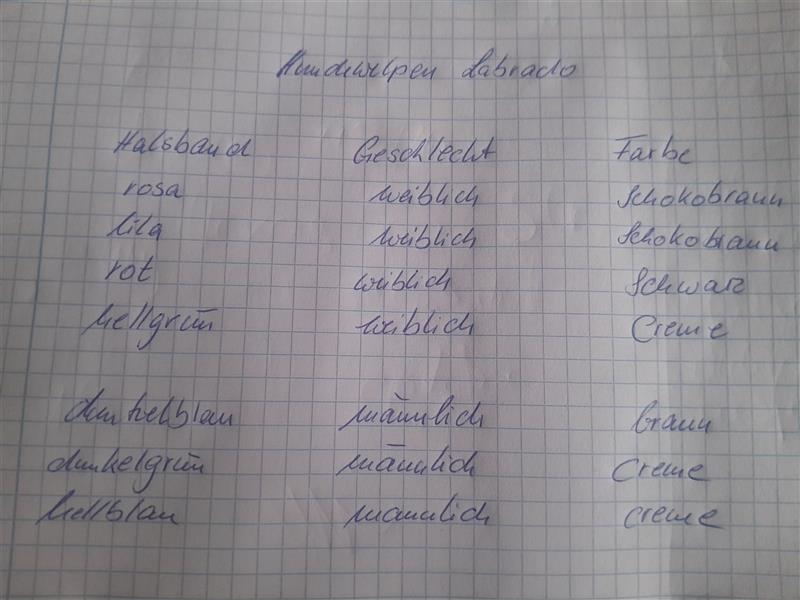 Hundewelpen Labrado
Halsband Geschlecht Farbe
rosa weiblich Schokobraun
lila weiblich Schokobraun
rot weiblich Schwarz
hellgrün weiblich Creme
dunkelblau männlich braun
dunkelgrün männlich Creme
hellblau mannlich creme